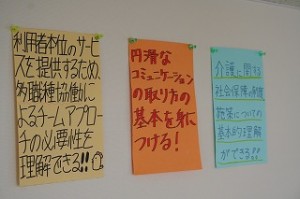 利用者本位のサービ
スを提供するため、
多職種協働に
よるチームアプロー
チの必要性を
理解できる!!
円滑な
コミュニケーション
の取り方の
基本を身に
つける!
介護に関する
社会保障の制度
施策についての
基本的理解
ができる!!